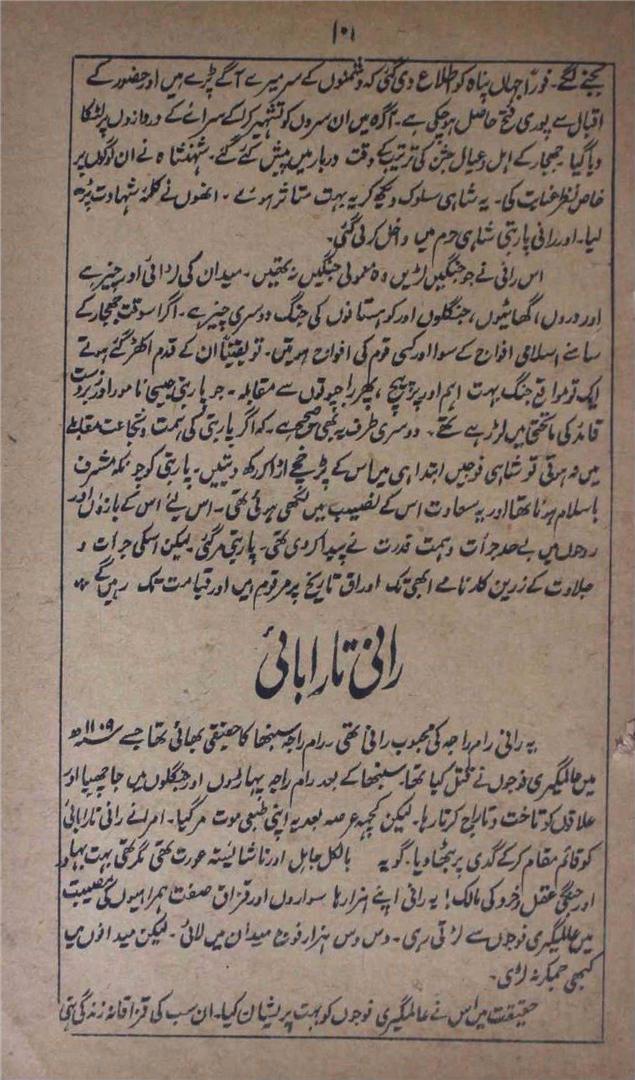 ۱۰۱
بجنے لگے۔ فوراً جہاں پناہ کو اطلاع دی گئی کہ دشمنوں کے سر میرے آگے پڑے ہیں اور حضور کے
اقبال سے پوری فتح حاصل ہو چکی ہے۔ آگرہ میں ان سروں کو تشہیر کرا کے سرائے کے دروازوں پر لٹکا
دیا گیا۔ جھجار کے اہل و عیال جشن کی ترتیب کے وقت دربار میں پیش کئے گئے۔ شہنشاہ نے ان لوگوں پر
خاص نظر عنایت کی۔ یہ شاہی سلوک دیکھ کر یہ بہت متاثر ہوئے۔ انھوں نے کلمۂ شہادت پڑھ
لیا۔ اور رانی پاربتی شاہی حرم میں داخل کر لی گئی۔
اس رانی نے جو جنگیں لڑیں وہ معمولی جنگیں نہ تھیں۔ میدان کی لڑائی اور چیز ہے
اور دروں، گھاٹیوں، جنگلوں اور کوہستانوں کی جنگ دوسری چیز ہے۔ اگر اسوقت جھجار کے
سامنے اسلامی افواج کے سوا اور کسی قوم کی افواج ہوتیں۔ تو یقیناً ان کے قدم اکھڑ گئے ہوتے
ایک تو مواقع جنگ بہت اہم اور پر پیچ، پھر راجپوتوں سے مقابلہ۔ جو پاربتی جیسی نامور اور زبردست
قائد کی ماتحتی میں لڑ رہے تھے۔ دوسری طرف یہ بھی صحیح ہے۔ کہ اگر پاربتی کی ہمت و شجاعت مقابلے
میں نہ ہوتی تو شاہی فوجیں ابتدا ہی میں اس کے پرخچے اڑا کر رکھ دیتیں۔ پاربتی کو چونکہ مشرف
باسلام ہونا تھا اور یہ سعادت اس کے نصیب میں لکھی ہوئی تھی۔ اس لئے اس کے بازوں اور
روحوں میں بے حد جرأت و ہمت قدرت نے پیدا کر دی تھی۔ پاربتی مر گئی لیکن اسکی جرات و
جلاوت کے زرین کارنامے ابھی تک اوراق تاریخ پر مرقوم ہیں اور قیامت تک رہیں گے
رانی تارا بائی
یہ رانی رام راجہ کی محبوب رانی تھی۔ رام راجہ سنبھا کا حقیقی بھائی تھا جسے ۱۱۰۹ھ
میں عالمگیری فوجوں نے قتل کیا تھا۔ سنبھا کے بعد رام راجہ پہاڑوں اور جنگلوں میں جا چھپا اور
علاقوں کو تاخت و تاراج کرتا رہا۔ لیکن کچھ عرصہ بعد یہ اپنی طبعی موت مر گیا۔ امرا نے رانی تارا بائی
کو قائم مقام کر کے گدی پر بٹھا دیا۔ گو یہ بالکل جاہل اور ناشائستہ عورت تھی مگر تھی بہت بہادر
اور جنگی عقل و خرد کی مالک! یہ رانی اپنے ہزارہا سواروں اور قزاق صفت ہمراہیوں کی مصیبت
میں عالمگیری فوجوں سے لڑتی رہی۔ دس دس ہزار فوج میدان میں لائی۔ لیکن میدانوں میں
کبھی جمکر نہ لڑی۔
حقیقت میں اس نے عالمگیری فوجوں کو بہت پریشان کیا۔ ان سب کی قزاقانہ زندگی تھی